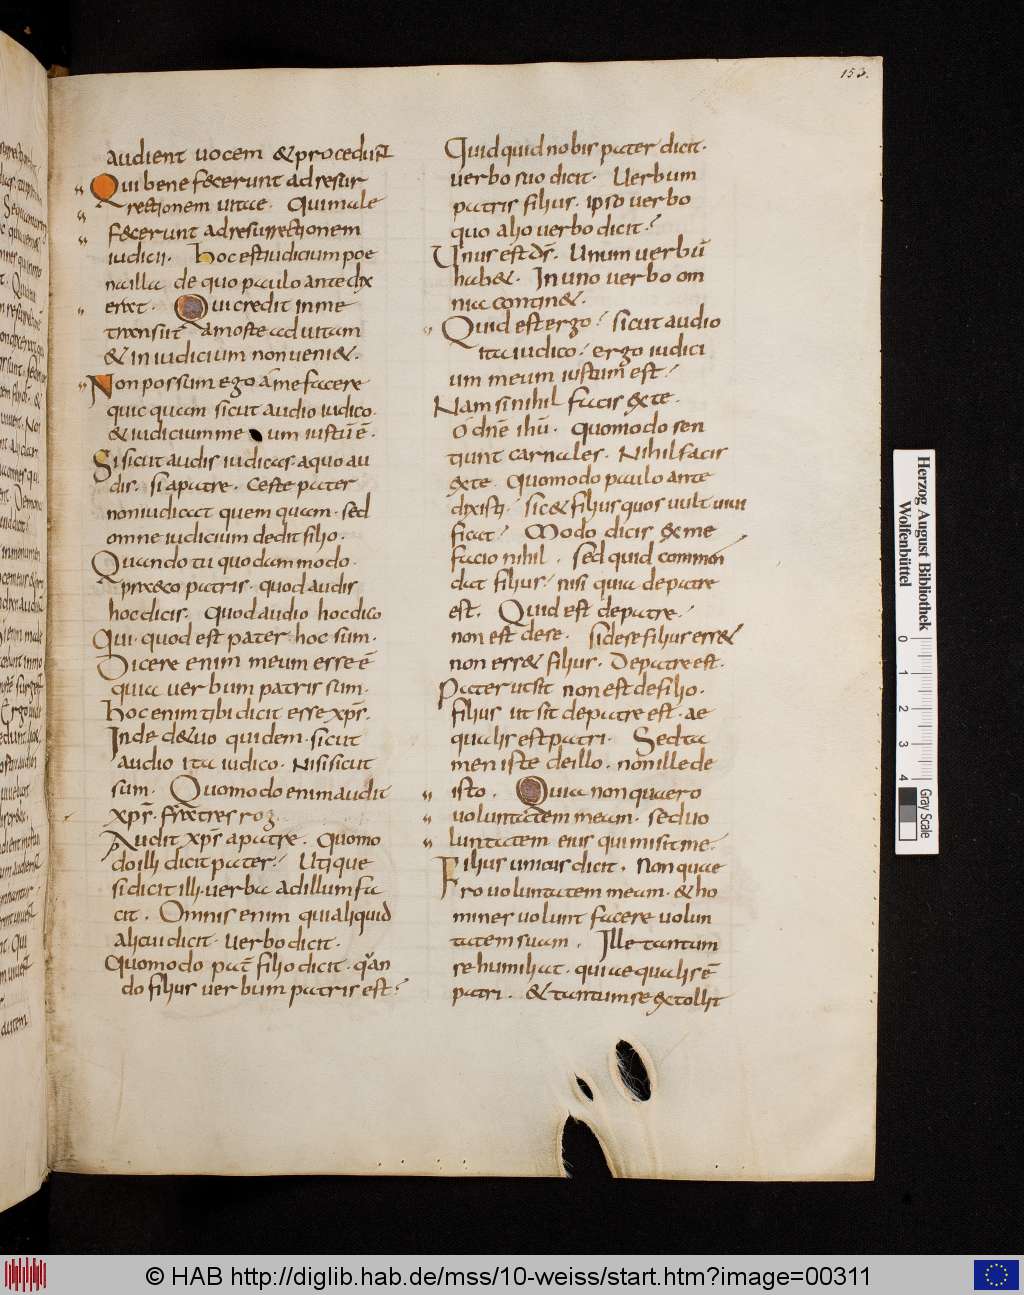 153.
audient uocem & procedunt
Qui bene fecerunt ad resur
rectionem uitae. Qui male
fecerunt ad resurrectionem
iudicii. Hoc est iudicium poe
na illa de quo paulo ante dix
erat. Qui credit in me
transiit a morte ad uitam
& in iudicium non ueni&.
Non possum ego a me facere
quicquam sicut audio iudico.
& iudicium me um iustū ē.
Si sicut audis iudicas. a quo au
dis. si a patre. Certe pater
non iudicat quemquam. sed
omne iudicium dedit filio.
Quando tu quodam modo
praeco patris. quod audis
hoc dicis. Quod audio hoc dico
Qui. quod est pater hoc sum.
Dicere enim meum esse ē
quia uerbum patris sum.
Hoc enim tibi dicit esse xp̄s.
Inde de tuo quidem. sicut
audio ita iudico. Nisi sicut
sum. Quomodo enim audit
xp̄s. fratres rog
Audit xp̄s a patre. Quomo
do illi dicit pater? Utique
si dicit illi. uerba ad illum fa
cit. Omnis enim qui aliquid
alicui dicit. uerbo dicit.
Quomodo pat̄ filio dicit. quan
do filius uerbum patris est?
Quidquid nobis pater dicit.
uerbo suo dicit. Uerbum
patris filius. ipso uerbo
quo alio uerbo dicit?
Unus est d̄s. Unum uerbū
hab&. In uno uerbo om
nia contin&.
Quid est ergo? sicut audio
ita iudico? ergo iudici
um meum iustum est?
Nam si nihil facis ex te.
O dn̄e ihū. quomodo sen
tiunt carnales. Nihil facis
ex te. Quomodo paulo ante
dixisti. sic & filius quos uult uiui
ficat? Modo dicis ex me
facio nihil. sed quid common
dat filius? nisi quia de patre
est. Quid est de patre?
non est de se. si de se filius ess&
non ess& filius. De patre est.
Pater ut sit non est de filio.
filius ut sit de patre est. ae
qualis est patri. Sed ta
men iste de illo. non ille de
isto. Quia non quaero
uoluntatem meam. sed uo
luntatem eius qui misit me.
Filius unicus dicit. Non quae
ro uoluntatem meam. & ho
mines uolunt facere uolun
tatem suam. Ille tantum
se humiliat. qui aequalis ē
patri. & tantum se extollit
Herzog August Bibliothek
Wolfenbüttel
0 1 2 3 4
Gray Scale
© HAB http://diglib.hab.de/mss/10-weiss/start.htm?image=00311